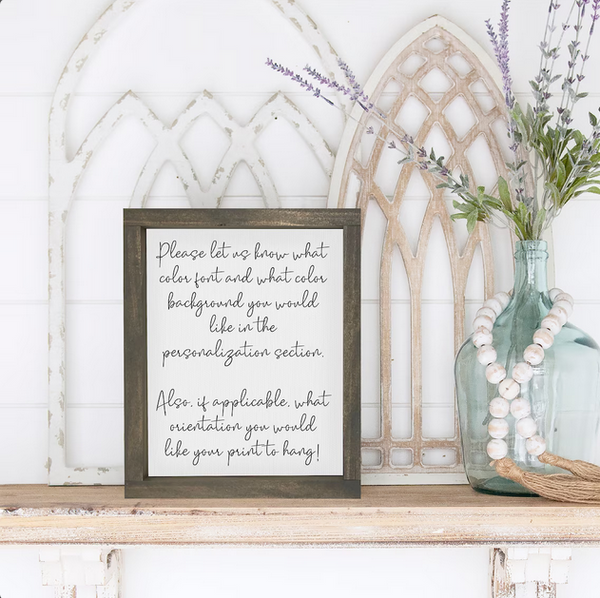 Please let us know what
color font and what color
background you would
like in the
personalization section.
Also, if applicable, what
orientation you would
like your print to hang!